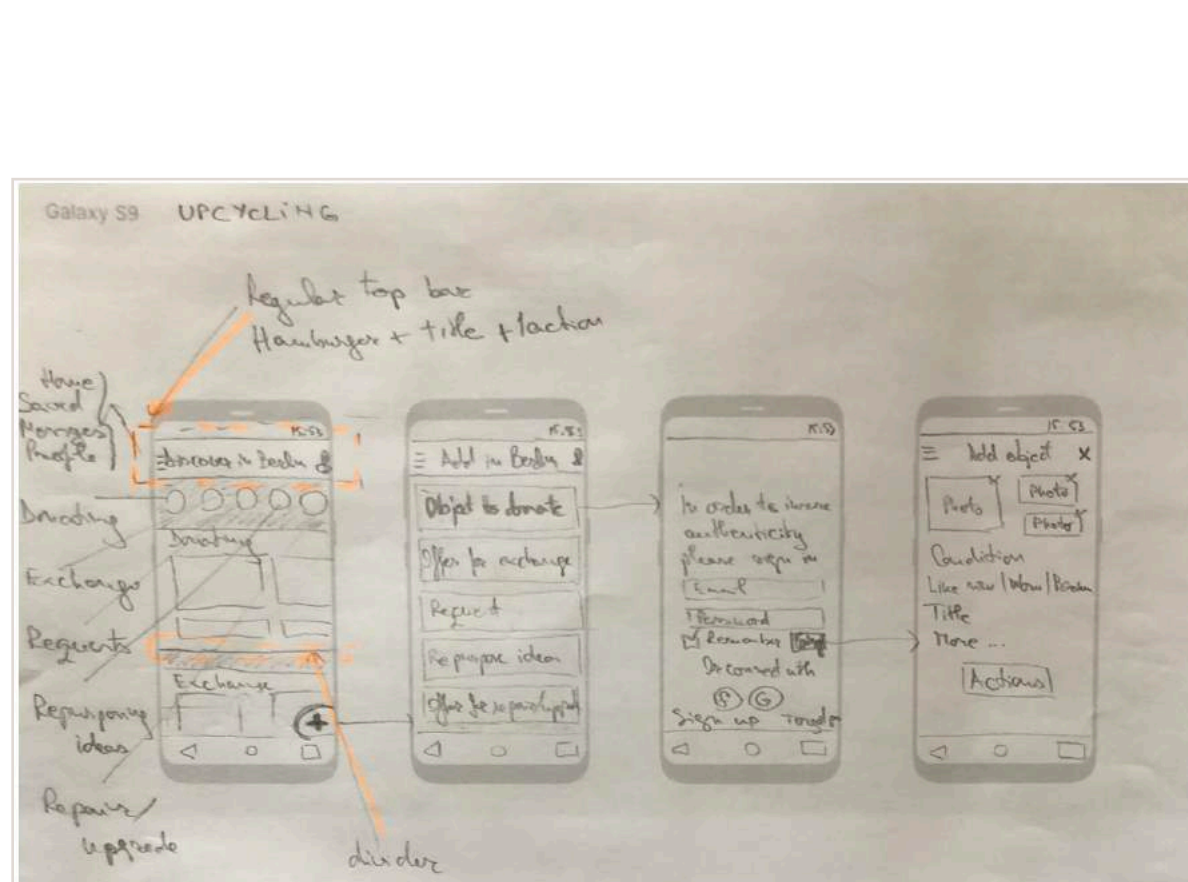 Galaxy S9 UPCYCLING
Regular top bar
Hamburger + title + 1action
Home
Saved
Profile
Donating
Exchange
Requests
Repurposing
ideas
Repair/
upgrade
divider
15.53
Discover in Berlin
Donating
Exchange
+
15.53
Add in Berlin
Object to donate
Offer for exchange
Request
Repurpose idea
Offer for repair/
15.53
In order to
authenticity
please sign in
Email
Password
Remember
Or connect with
f G
Sign up
15 53
Add object x
Photo
Photo
Photo
Condition
Like new / / Broken
Title
More ...
Actions